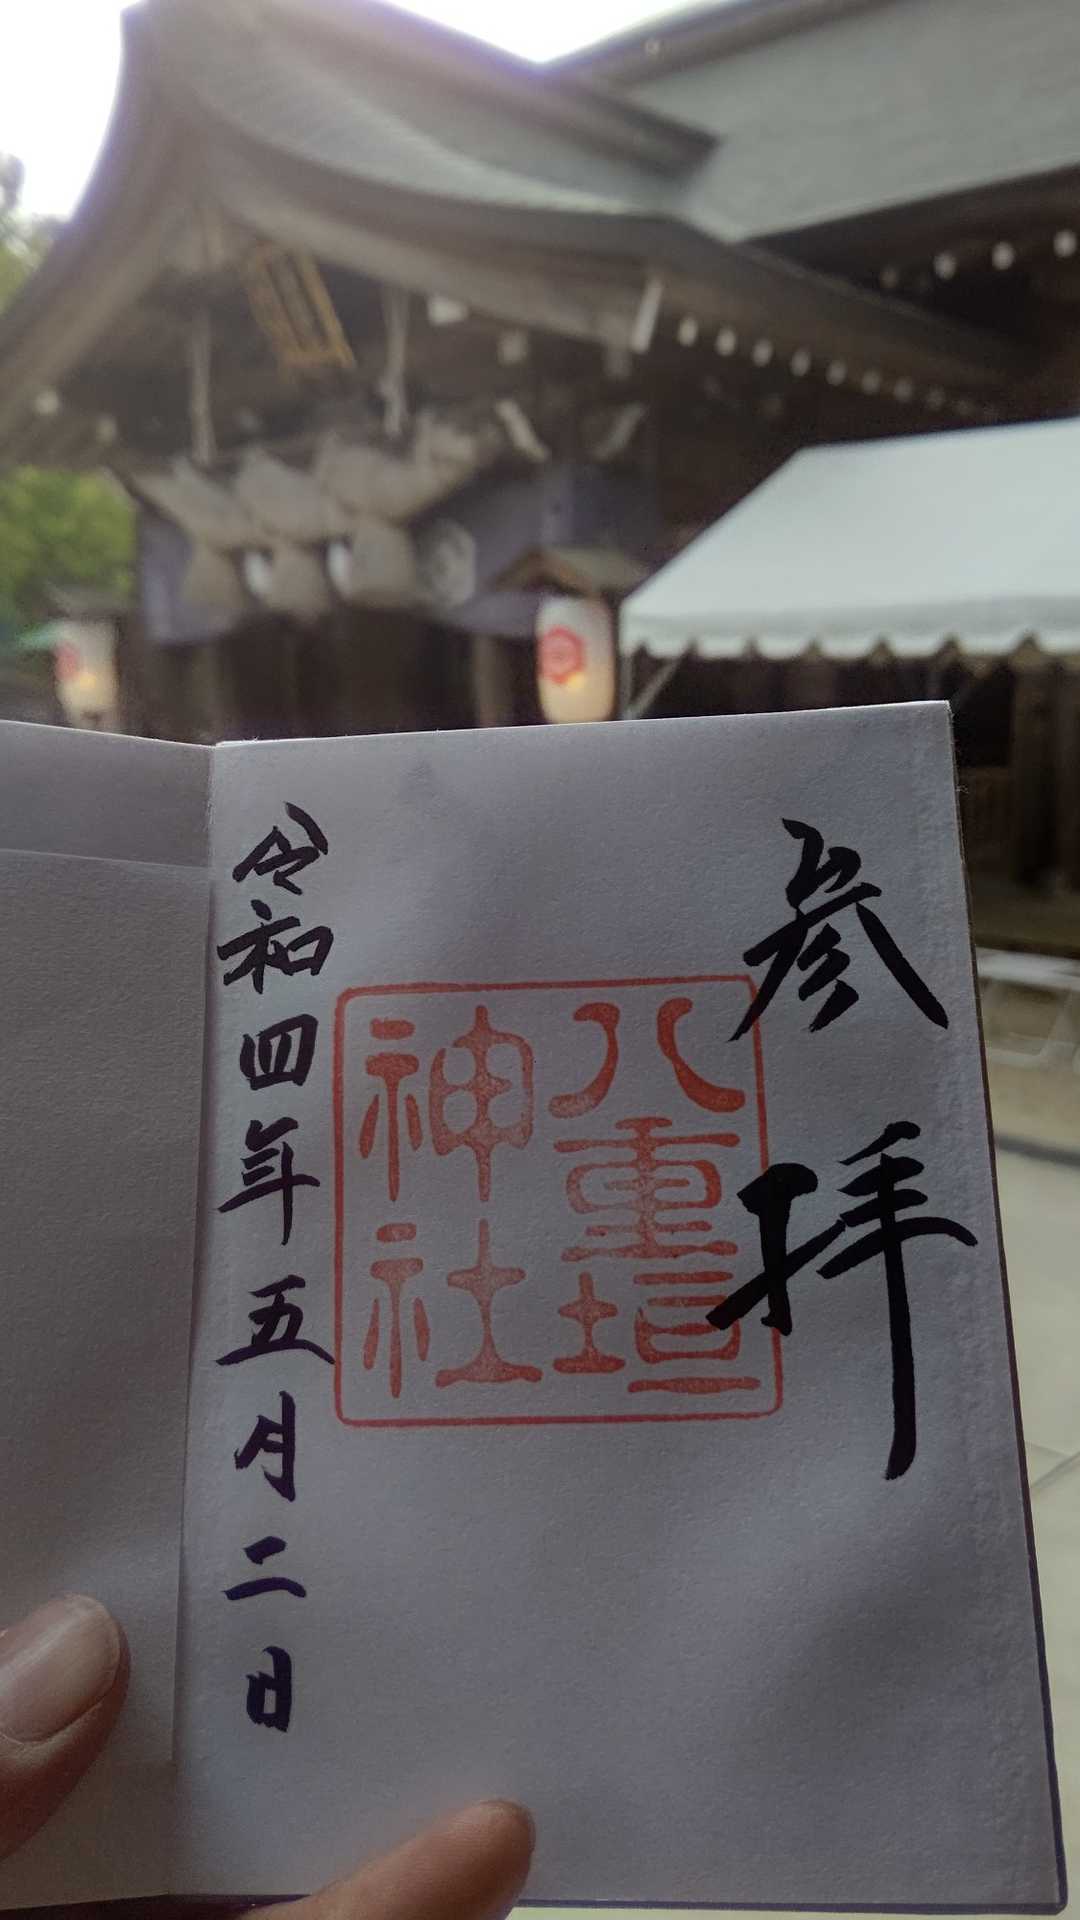 参拝
八重垣
神社
令和四年五月二日